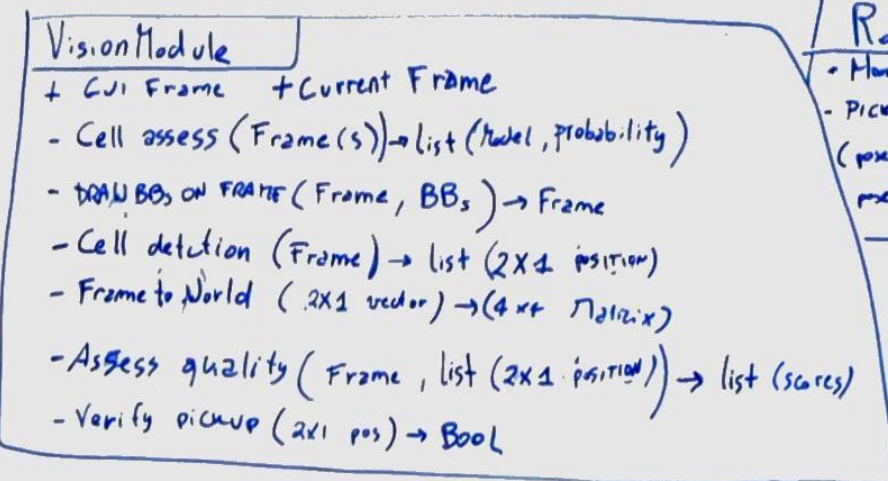 VisionModule
+ GUI Frame + Current Frame
- Cell assess (Frame(s)) → list (Model, probability)
- DRAW BBs ON FRAME (Frame, BBs) → Frame
- Cell detction (Frame) → list (2x1 POSITION)
- Frame to World (2x1 vector) → (4x4 Matrix)
- Assess quality (Frame, list (2x1 POSITION)) → list (scores)
- Verify pickup (2x1 pos) → Bool
- PICK
(pose
pose